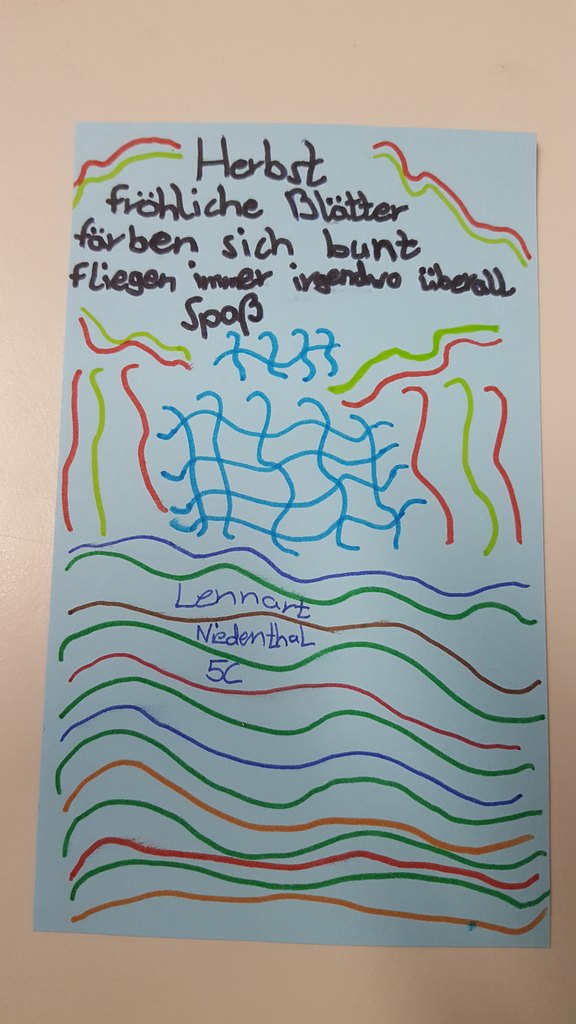 Herbst
fröhliche Blätter
färben sich bunt
fliegen immer irgendwo überall
Spaß
Lennart
Niedenthal
5C